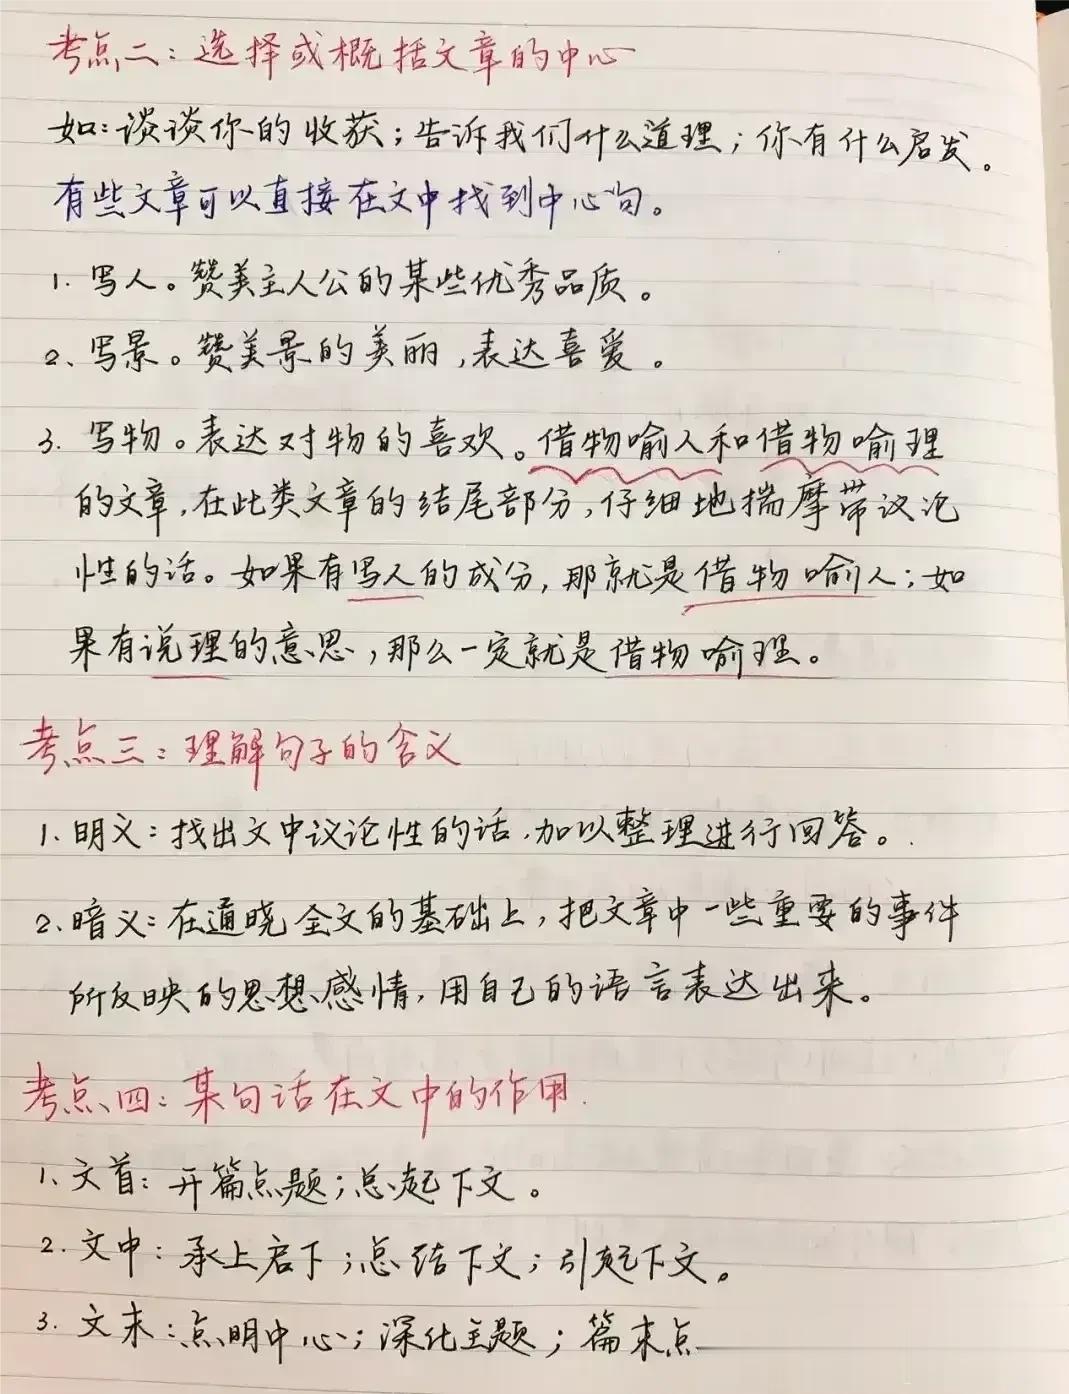 考点二：选择或概括文章的中心
如：谈谈你的收获；告诉我们什么道理；你有什么启发。
有些文章可以直接在文中找到中心句。
1. 写人。赞美主人公的某些优秀品质。
2、写景。赞美景的美丽，表达喜爱。
3. 写物。表达对物的喜欢。借物喻人和借物喻理
的文章，在此类文章的结尾部分，仔细地揣摩带议论
性的话。如果有写人的成分，那就是借物喻人；如
果有说理的意思，那么一定就是借物喻理。
考点三：理解句子的含义
1、明义：找出文中议论性的话，加以整理进行回答。
2、暗义：在通晓全文的基础上，把文章中一些重要的事件
所反映的思想感情，用自己的语言表达出来。
考点四：某句话在文中的作用.
1、文首：开篇点题；总起下文。
2. 文中：承上启下；总结下文；引起下文。
3. 文末：点明中心；深化主题；篇末点